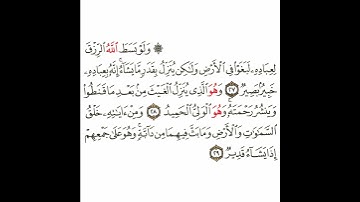 ۞ وَلَوْ بَسَطَ ٱللَّهُ ٱلرِّزْقَ
لِعِبَادِهِۦ لَبَغَوْا۟ فِى ٱلْأَرْضِ وَلَٰكِن يُنَزِّلُ بِقَدَرٍ مَّا يَشَآءُ ۚ إِنَّهُۥ بِعِبَادِهِۦ
خَبِيرٌۢ بَصِيرٌ ٢٧ وَهُوَ ٱلَّذِى يُنَزِّلُ ٱلْغَيْثَ مِنۢ بَعْدِ مَا قَنَطُوا۟
وَيَنشُرُ رَحْمَتَهُۥ ۚ وَهُوَ ٱلْوَلِىُّ ٱلْحَمِيدُ ٢٨ وَمِنْ ءَايَٰتِهِۦ خَلْقُ
ٱلسَّمَٰوَٰتِ وَٱلْأَرْضِ وَمَا بَثَّ فِيهِمَا مِن دَآبَّةٍ ۚ وَهُوَ عَلَىٰ جَمْعِهِمْ
إِذَا يَشَآءُ قَدِيرٌ ٢٩